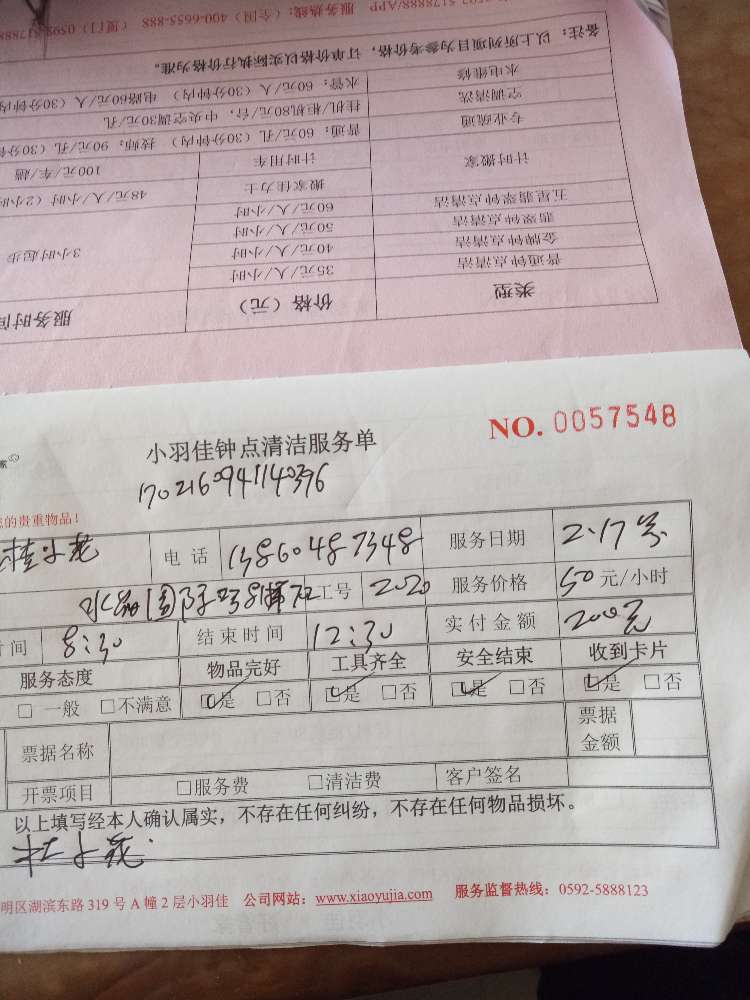 类型 价格（元） 服务时间
普通钟点清洁 35元/人/小时 3小时起步
金牌钟点清洁 40元/人/小时
翡翠钟点清洁 50元/人/小时
五星翡翠钟点清洁 60元/人/小时
计时搬家 搬家佳力士 48元/人/小时（2小时
计时用车 100元/车/趟
专业疏通 普通：60元/孔（30分钟内） 技师：90元/孔（30分钟
空调清洗 挂机/柜机80元/台，中央空调30元/孔
水电维修 水管：60元/人（30分钟内） 电路60元/人（30分钟内
备注：以上所列项目为参考价格，订单价格以实际执行价格为准。
8178888/APP 服务热线：（全国）400-6655-888 （厦门）0592-
小羽佳钟点清洁服务单 NO. 0057548
1702160941140396
的贵重物品！
桂小花 电话 13860487348 服务日期 2.17号
水 国际 工号 2020 服务价格 50元/小时
时间 8:30 结束时间 12:30 实付金额 200元
服务态度 物品完好 工具齐全 安全结束 收到卡片
□ 一般 □不满意 □是 □否 □是 □否 □是 □否 □是 □否
票据名称 票据金额
开票项目 □服务费 □清洁费 客户签名
以上填写经本人确认属实，不存在任何纠纷，不存在任何物品损坏。
桂小花
明区湖滨东路 319 号 A 幢 2 层小羽佳 公司网站：www.xiaoyujia.com 服务监督热线：0592-5888123